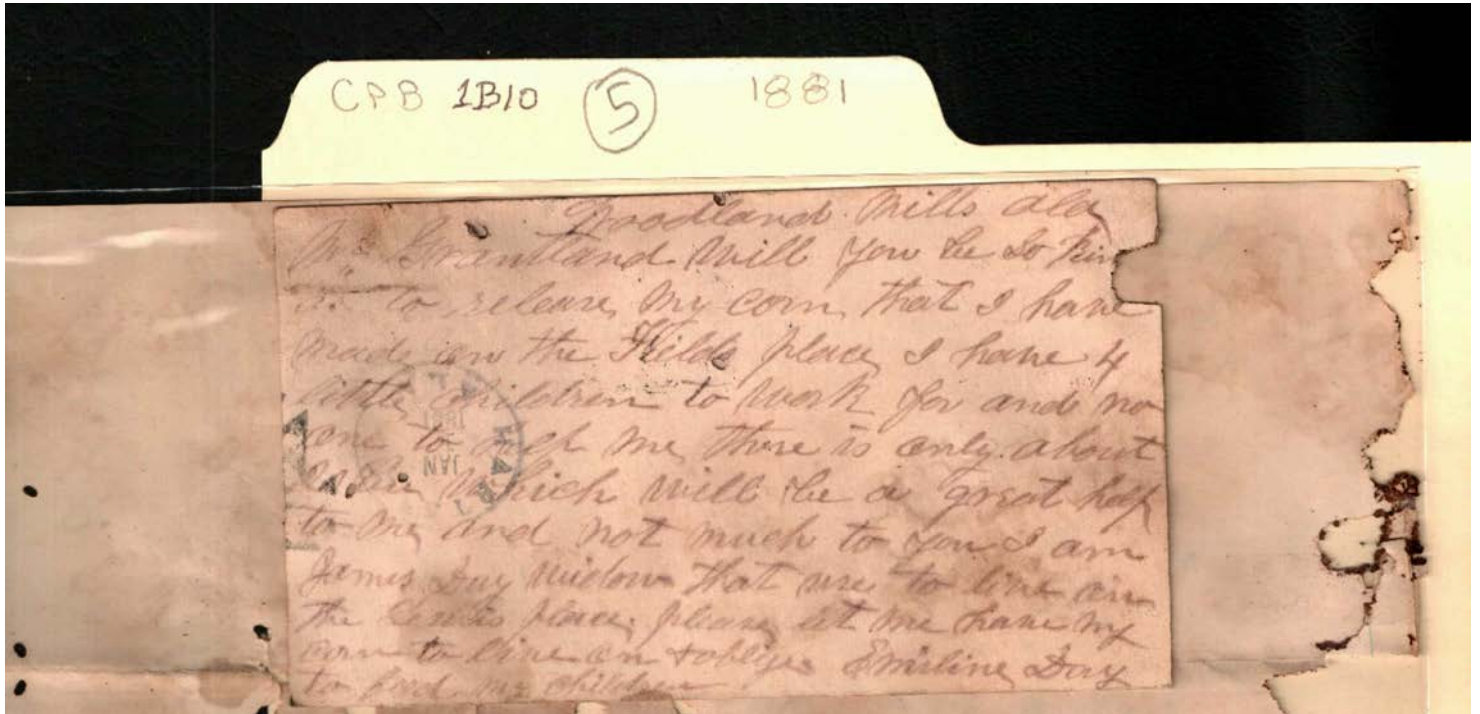 CPB 1B10 5 1881
Woodland Mills ala
Mr Grantland Will you be so kin
to release my corn that I have
made on the Fields place I have 4
little children to work for and no
one to help me there is only about
which will be a great help
to me and not much to you I am
James Day widow that use to live on
the place please let me have my
corn to live on & oblige Emiline Day
to feed my children
JAN